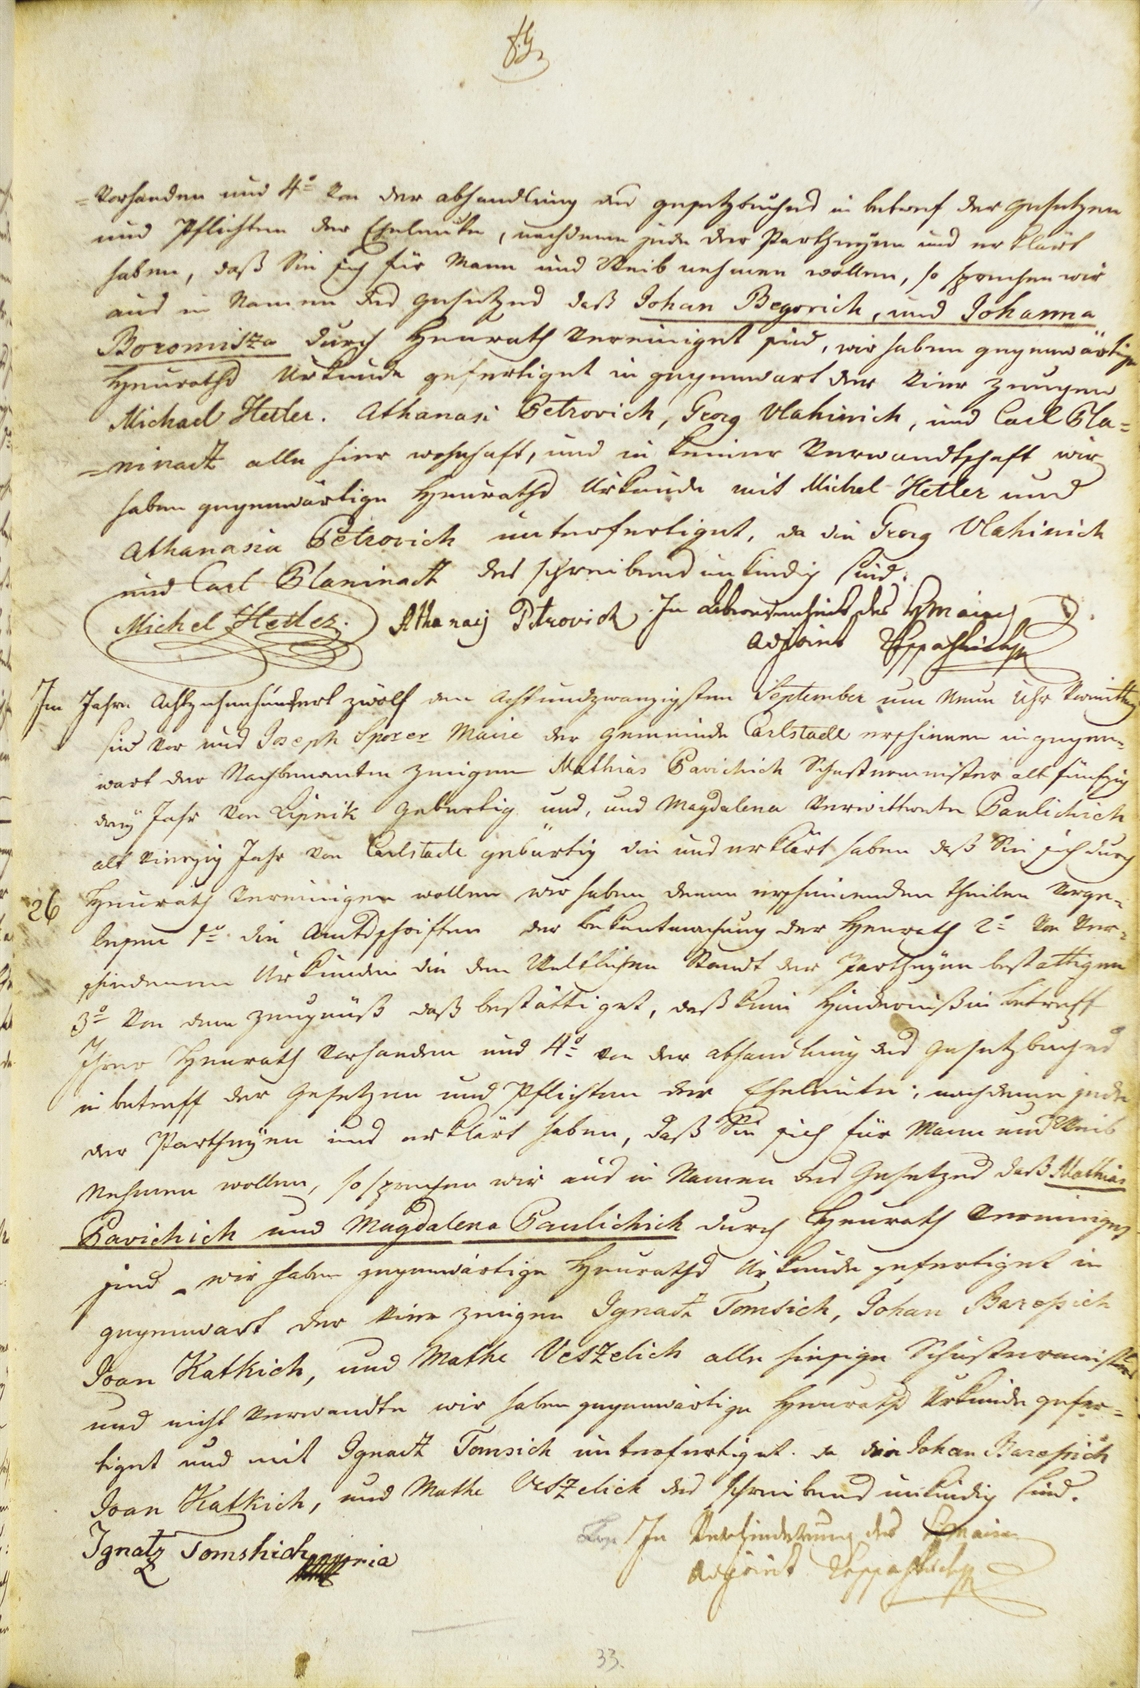 =vorhanden und 4º von der abhandlung des gesetzbuches in betref der Gesetzen
und Pflichten der Eheleute, nachdeme jede der Partheyen uns erklärt
haben, daß Sie sich für Mann und Weib nehmen wollen, so sprechen wir
aus in Namen des gesetzes daß Johan Begovich, und Johanna
Boromisza durch Heurath vereiniget sind, wir haben gegenwärtige
Heuraths Urkunde gefertiget in gegenwart der vier zeugen
Michael Hetler. Athanasi Petrovich, Georg Vlahinich, und Carl Pla=
=ninack alle hier wohnhaft, und in keiner Verwandtschaft wir
haben gegenwärtige Heuraths Urkunde mit Michel Hetler und
Athanasia Petrovich unterfertiget, da die Georg Vlahinich
und Carl Planinack des schreibens unkundig sind.
Michel Hetler. Athanasy Petrovich In des H Maire
Adjoint
Im Jahre Achtzehenhundert zwölf den Achtundzwanzigsten September um Neun Uhr Vormittag
sind vor uns Joseph Sporer Maire der Gemeinde Carlstadt erschienen in gegen=
wart der Nachbenanten zeugen Mathias Pavichich Schustermeister alt fünfzig
drey Jahr von Lipnik gebürtig und, und Magdalena verwittwete Paulichich
alt vierzig Jahr von Carlstadt gebürtig die uns erklärt haben daß Sie sich durch
26 Heurath vereinigen wollen wir haben denen erscheinenden theilen vorge=
lesen 1º die Amtsschriften der bekantmachung der Heurath 2º von ver=
schiedenen Urkunden die den Weltlichen Standt der Partheyen bestättigen
3º von dem zeugnüß daß bestättiget, daß kein Hinderniß in betreff
Ihrer Heurath vorhanden und 4º von der abhandlung des Gesetzbuches
in betreff der Gesetzen und Pflichten der Eheleute; nachdeme jede
der Partheyen uns erklärt haben, daß Sie sich für Mann und Weib
Nehmen wollen, so sprechen wir aus in Namen des Gesetzes daß Mathias
Pavichich und Magdalena Paulichich durch Heurath vereiniget
sind. wir haben gegenwärtige Heuraths Urkunde gefertiget in
gegenwart der vier zeugen Ignatz Tomsich, Johan Baresich
Ivan Katkich, und Mathe Veszelich alle hiesige Schustermeister
und nicht verwandte wir haben gegenwärtige Heuraths Urkunde gefer=
tiget und mit Ignatz Tomsich unterfertiget. da die Johan Baresich
Ivan Katkich, und Mathe Veszelich des schreibens unkundig sind.
Ignatz Tomshich In Verhinderung des H Maire
Adjoint
33.